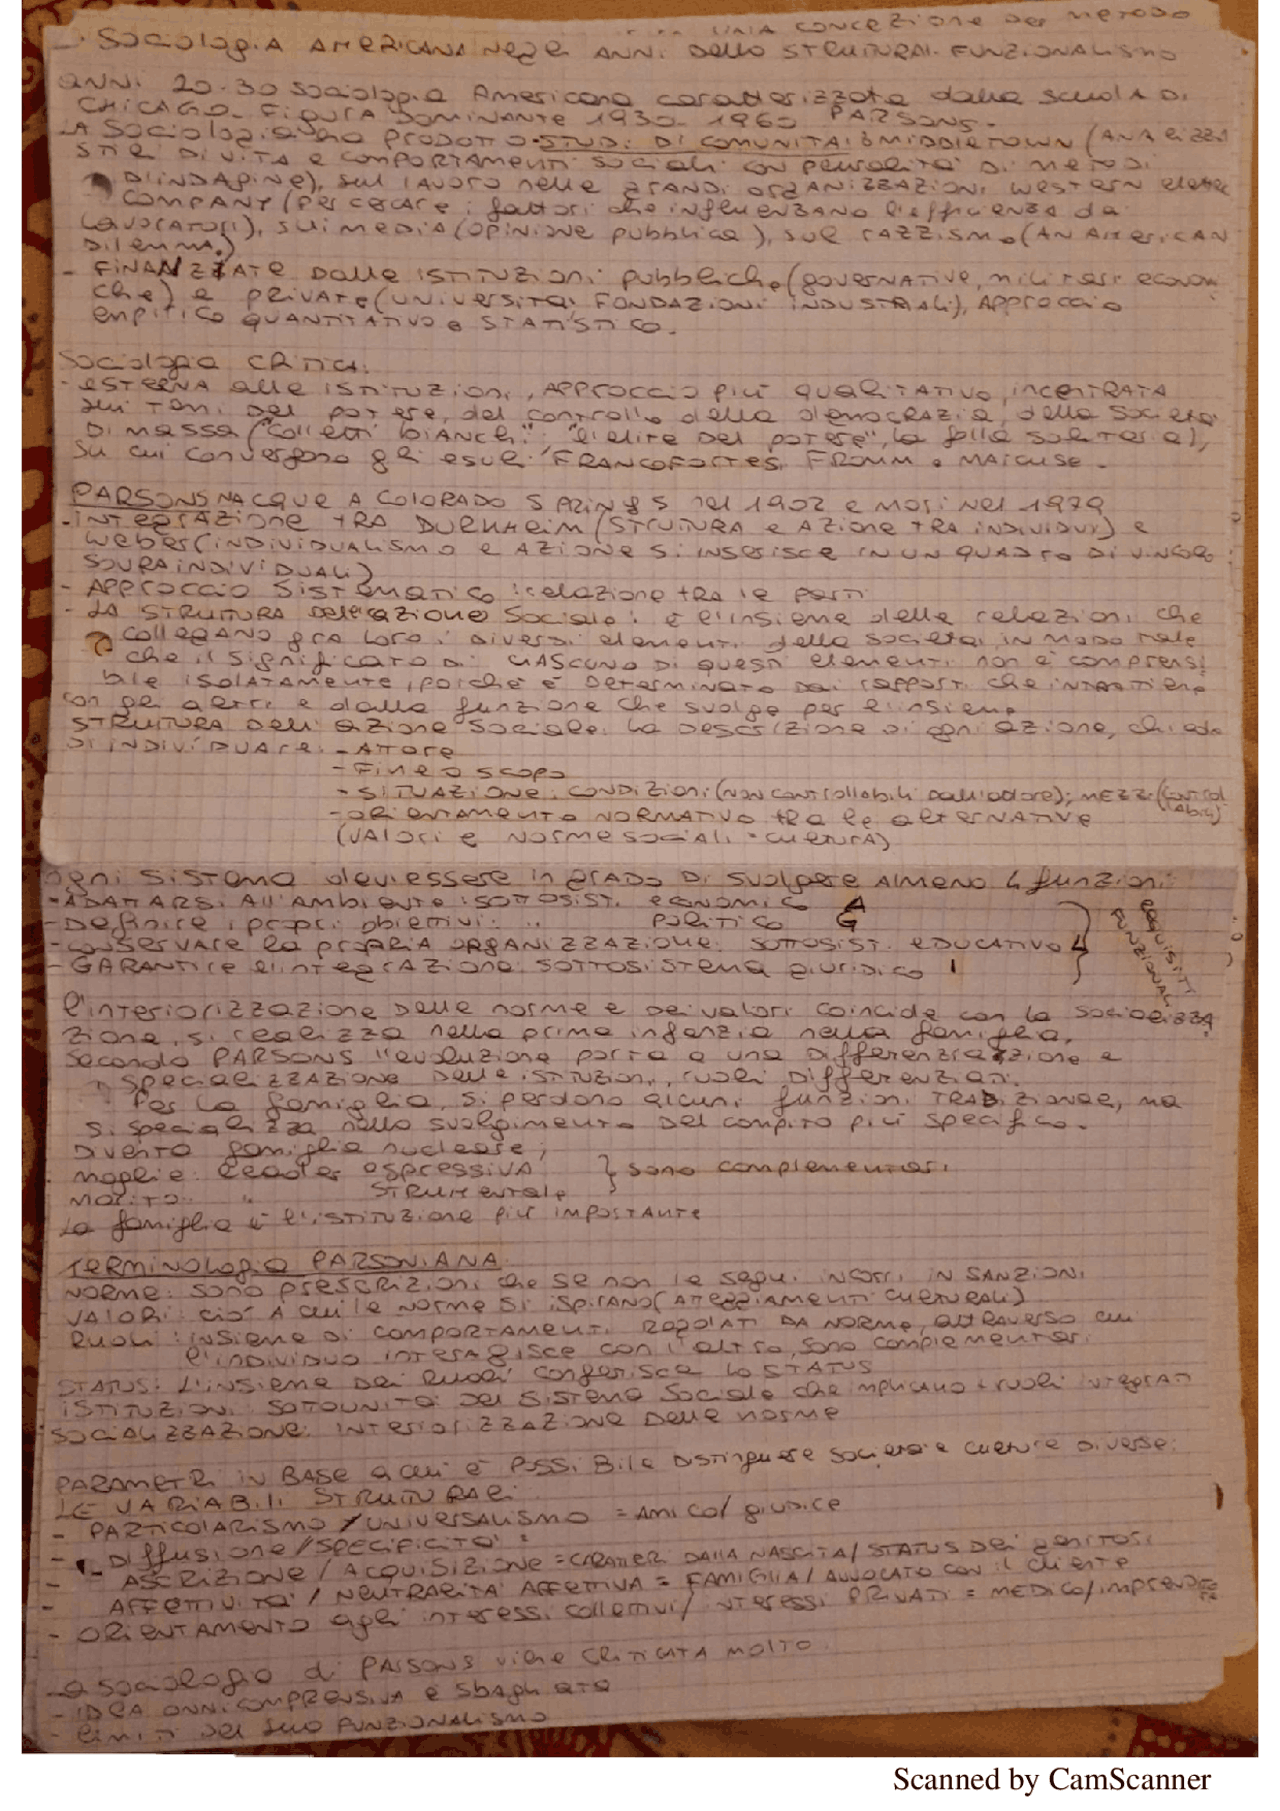 UNA CONCEZIONE DEL METODO
SociologiA AMERICANA negli ANNI dello STRUTTURAL-FUNZIONALISMO
ANNI 20-30 sociologia Americana caratterizzata dalla scuola DI
CHICAGO. FIGURA DOMINANTE 1930-1960 PARSONS.
LA Sociologia ha PRODOTTO STUDI DI COMUNITÀ: MIDDLETOWN (ANALIZZA
STILI DI VITA e COMPORTAMENTI sociali con pluralità DI METODI
D'INDAGINE), sul LAVORO nelle GRANDI ORGANIZZAZIONI WESTERN eletric
COMPANY (per cercare i fattori che influenzano l'efficienza da
LAVORATORI), sui media (OPINIONE pubblica), sul RAZZISMO (AN AMERICAN
DILEMMA)
- FINANZIATE dalle ISTITUZIONI pubbliche (governative, militari econom
che) e PRIVATE (UNIVERSITÀ, FONDAZIONI INDUSTRIALI), Approccio
empirico QUANTITATIVO e STATISTICO.
Sociologia CRITICA:
- ESTERNA alle ISTITUZIONI, APPROCCIO più QUALITATIVO, INCENTRATA
sui Temi del potere, del controllo della democrazia, della Società
DI MASSA ("colletti bianchi", "l'elite del potere", la folla solitaria),
su cui convergono gli esuli FRANCOFORTESI FROMM e MARCUSE.
PARSONS NACQUE A COLORADO SPRINGS nel 1902 e MORI NEL 1979
- INTEGRAZIONE TRA DURKHEIM (STRUTTURA e AZIONE TRA INDIVIDUI) e
Weber (INDIVIDUALISMO e AZIONE SI INSERISCE IN UN QUADRO DI VINCOLI
SOVRAINDIVIDUALI)
- APPROCCIO SISTEMATICO: relazione TRA le PARTI
- LA STRUTTURA dell'azione Sociale: è l'insieme delle relazioni che
COLLEGANO fra loro i DIVERSI elementi della società, IN MODO tale
che il SIGNIFICATO DI CIASCUNO DI questi elementi non è comprensi
bile ISOLATAMENTE, poichè è DETERMINATO DAI rapporti che intrattiene
con gli altri e dalla funzione che svolge per l'insieme
STRUTTURA Dell'azione Sociale: la DESCRIZIONE DI ogni azione, chiede
DI INDIVIDUARE: - ATTORE
- FINE O SCOPO
- SITUAZIONE: CONDIZIONI (non controllabili dall'attore); MEZZI (control
labili)
- ORIENTAMENTO NORMATIVO tra le ALTERNATIVE
(VALORI e NORME SOCIALI = CULTURA)
Ogni Sistema dev'essere in GRADO DI svolgere ALMENO 4 funzioni:
- ADATTARSI All'AMBIENTE: SOTTOSIST. economico A
- Definire i propri obiettivi: " POLITICO G
- CONSERVARE la PROPRIA ORGANIZZAZIONE: SOTTOSIST. EDUCATIVO L
- GARANTIRE l'integrazione: SOTTOSISTEMA GIURIDICO I
REQUISITI
FUNZIONALI
l'interiorizzazione Delle norme e Dei valori coincide con la Socializza
zione, si realizza nella prima infanzia nella famiglia.
Secondo PARSONS l'evoluzione porta a una DIFFERENZIAZIONE e
SPECIALIZZAZIONE Delle ISTITUZIONI, ruoli DIFFERENZIATI.
Per la famiglia, si perdono alcuni funzioni TRADIZIONALI, ma
si specializza nello svolgimento del compito più specifico.
Diventa famiglia nucleare;
moglie: leader espressiva } sono complementari
MARITO: " STRUMENTALE
La famiglia è l'ISTITUZIONE più IMPORTANTE
TERMINOLOGIA PARSONIANA
NORME: SONO PRESCRIZIONI che se non le segui incorri IN SANZIONI
VALORI: ciò A cui le norme si ispirano (ATEGGIAMENTI CULTURALI)
RUOLI: INSIEME DI COMPORTAMENTI REGOLATI DA NORME, ATTRAVERSO cui
l'INDIVIDUO INTERAGISCE con l'altro, sono complementari
STATUS: L'insieme dei RUOLI conferisce lo STATUS
ISTITUZIONI: SOTOUNITÀ Del Sistema Sociale che implicano i ruoli INTEGRATI
SOCIALIZZAZIONE: INTERIORIZZAZIONE Delle norme
PARAMETRI IN BASE a cui è POSSIBILE DISTINGUERE SOCIETÀ e CULTURE DIVERSE:
LE VARIABILI STRUTTURALI
- PARTICOLARISMO / UNIVERSALISMO = AMICO/ giudice
- DIFFUSIONE / SPECIFICITÀ =
- ASCRIZIONE / ACQUISIZIONE = CARATTERI DALLA NASCITA / STATUS DEI GENITORI
- AFFETTIVITÀ / NEUTRALITÀ AFFETTIVA = FAMIGLIA / AVVOCATO con il cliente
- ORIENTAMENTO agli interessi collettivi / INTERESSI PRIVATI = MEDICO/imprendito
re
La sociologia di PARSONS viene CRITICATA MOLTO
- IDEA ONNICOMPRENSIVA è SbAgliATA
- limiti del suo FUNZIONALISMO
Scanned by CamScanner